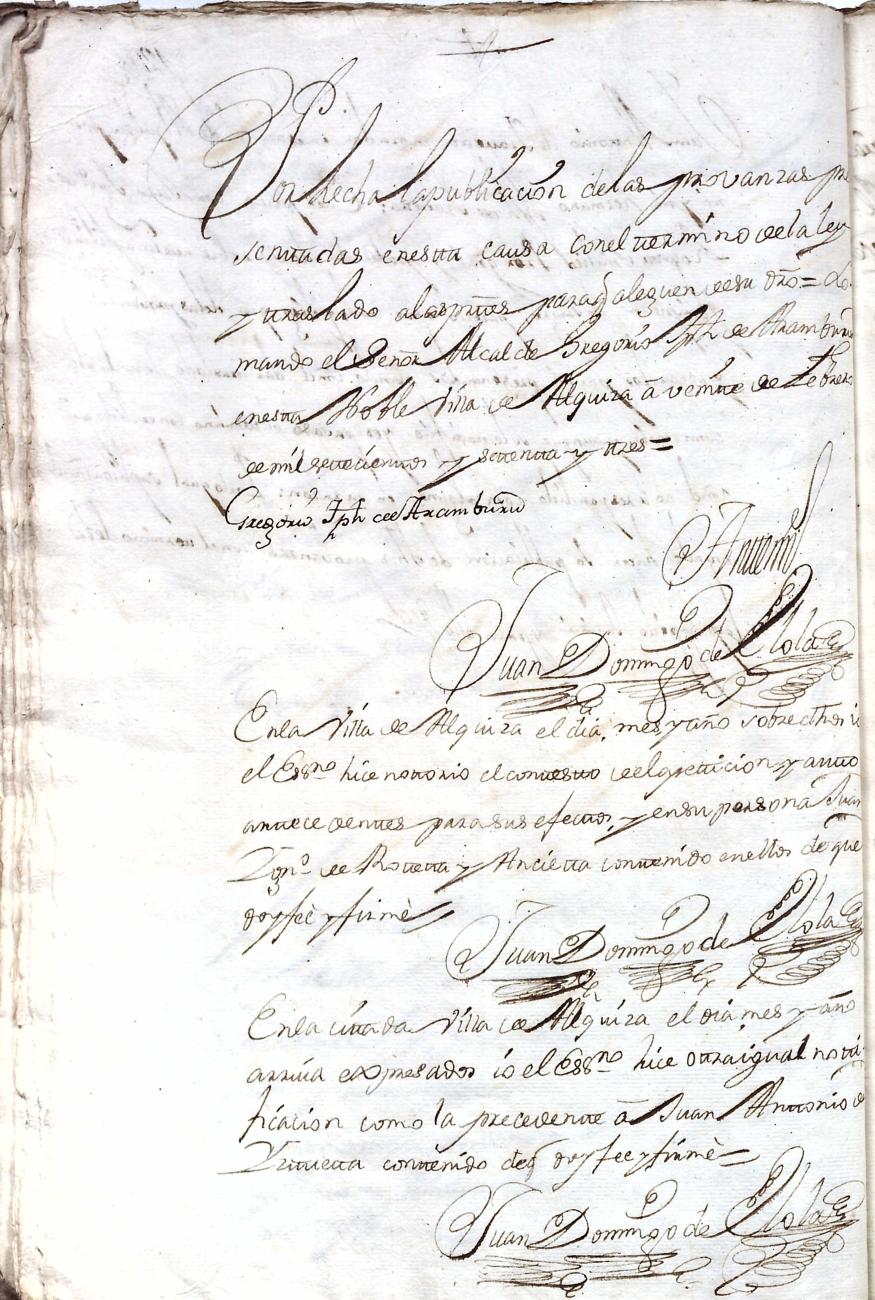 Por hecha la publicación de las provanzas pre
senttadas en estta causa con el ttermino de la ley
y ttraslado a las prttes para q̃ aleguen de su dro̅ = Lo
mandó el Señor Alcalde Gregorio Jph de Aramburu
en estta Noble Villa de Alquiza â veintte de Febrero
de mil settecienttos y settentta y ttres =
Gregorio Jph de Aramburu
Antte mi
Juan Domingo de Elola
En la Villa de Alquiza el dia, mes y año sobre dhos io
el Essno hice nottorio el conttestto de el petticion y autto
anttecedenttes para sus efecttos, y en su persona Juan
de Rotteta y Ancietta conttenido en ellos de que
doy fee y firmè
Juan Domingo de Elola
En la cittada Villa de Alquiza el dia, mes y año
arriva expresados io el Essno hice ottra igual notti
ficacion como la precedentte â Juan Anttonio de
Yttuetta conttenido de q̃ doy fee y firmè =
Juan Domingo de Elola